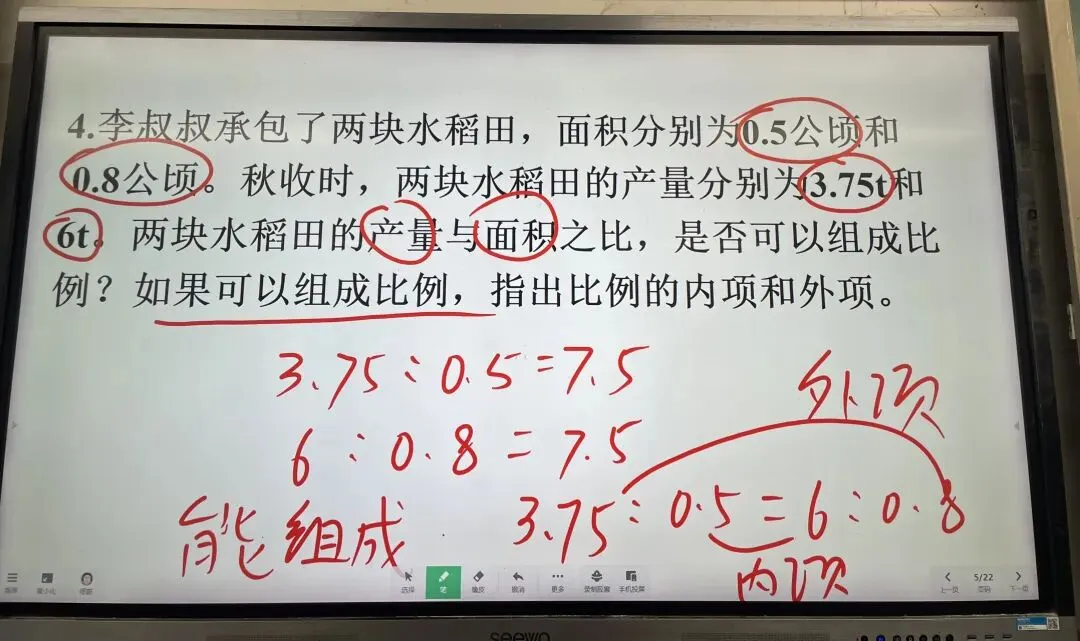 4.李叔叔承包了两块水稻田，面积分别为0.5公顷和
0.8公顷。秋收时，两块水稻田的产量分别为3.75t和
6t。两块水稻田的产量与面积之比，是否可以组成比
例？如果可以组成比例，指出比例的内项和外项。
3.75:0.5=7.5
6:0.8=7.5
外项
能组成.
3.75:0.5=6:0.8
内项
选择 笔 橡皮 撤消 更多 录制胶囊 手机投屏
上一页 5/22 页码 下一页
seewo